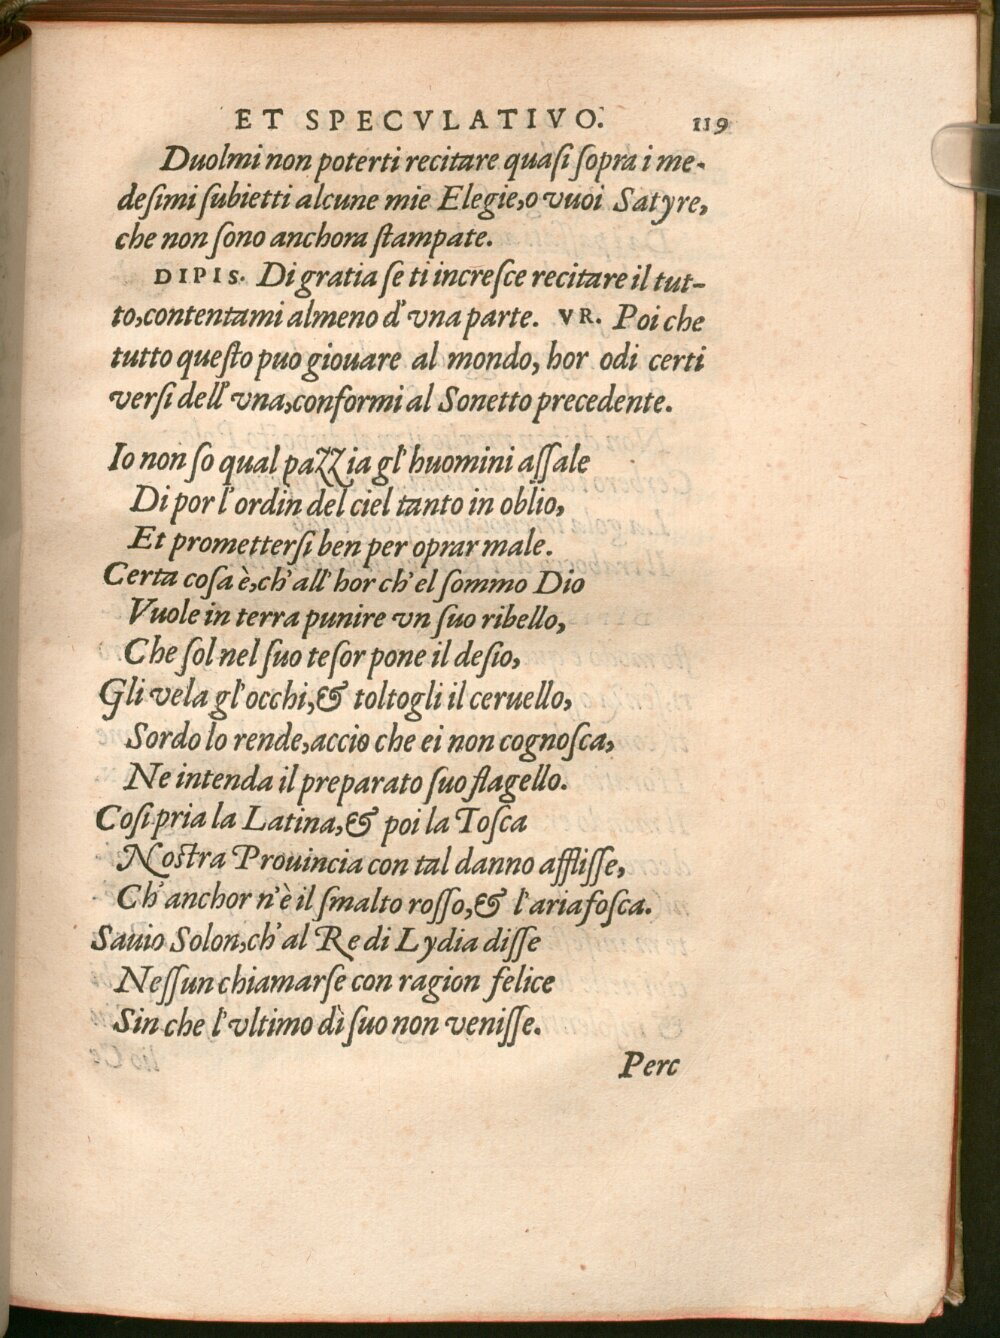 ET SPECVLATIVO. 119
Duolmi non poterti recitare quasi sopra i me-
desimi subietti alcune mie Elegie, o vuoi Satyre,
che non sono anchora stampate.
DIPIS. Di gratia se ti incresce recitare il tut-
to, contentami almeno d'vna parte. VR. Poi che
tutto questo puo giouare al mondo, hor odi certi
versi dell'vna, conformi al Sonetto precedente.
Io non so qual pazzia gl'huomini assale
Di por l'ordin del ciel tanto in oblio,
Et promettersi ben per oprar male.
Certa cosa è, ch'all'hor ch'el sommo Dio
Vuole in terra punire vn suo ribello,
Che sol nel suo tesor pone il desio,
Gli vela gl'occhi, & toltogli il ceruello,
Sordo lo rende, accio che ei non cognosca,
Ne intenda il preparato suo flagello.
Cosi pria la Latina, & poi la Tosca
Nostra Prouincia con tal danno afflisse,
Ch'anchor n'è il smalto rosso, & l'aria fosca.
Sauio Solon, ch'al Re di Lydia disse
Nessun chiamarse con ragion felice
Sin che l'vltimo dì suo non venisse.
Perc